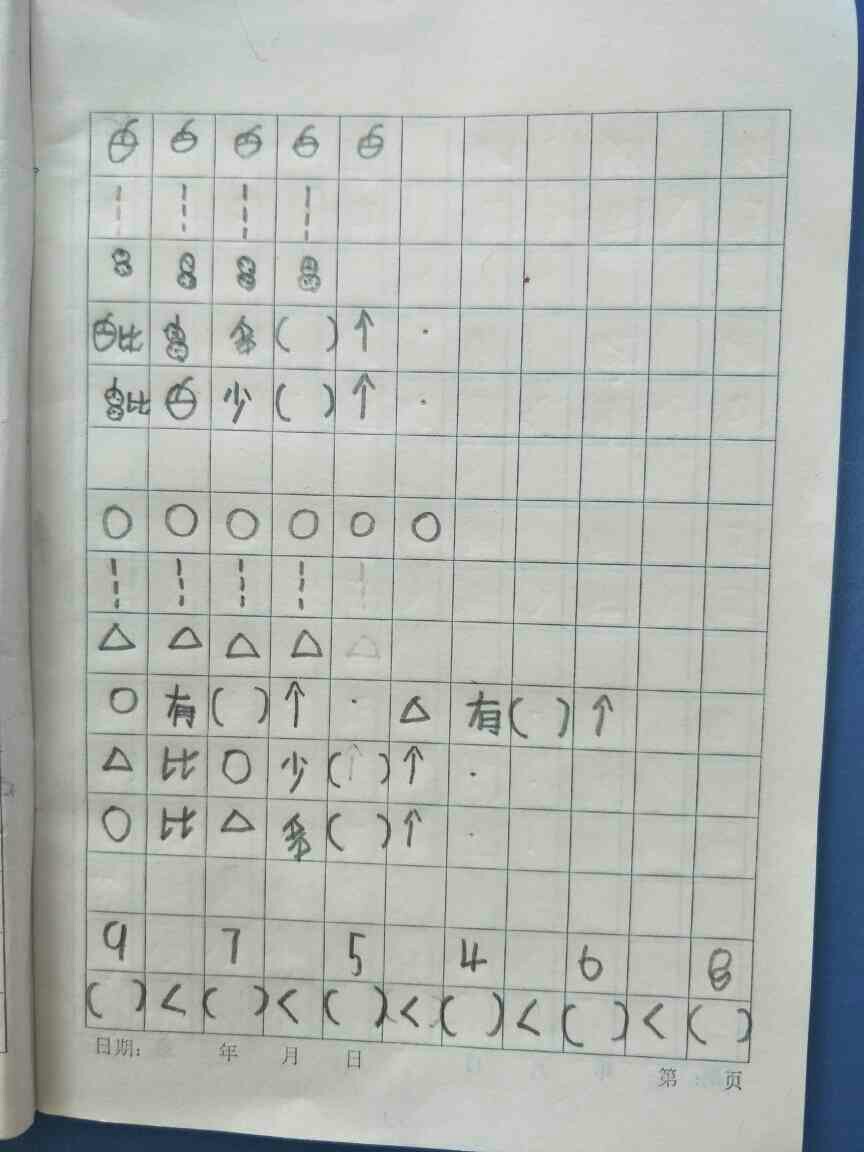 比 多 ( ) 个.
比 少 ( ) 个.
○ 有 ( ) 个. △ 有 ( ) 个
△ 比 ○ 少 ( ) 个.
○ 比 △ 多 ( ) 个.
9 7 5 4 6 8
( ) < ( ) < ( ) < ( ) < ( ) < ( )
日期: 年 月 日
第 页